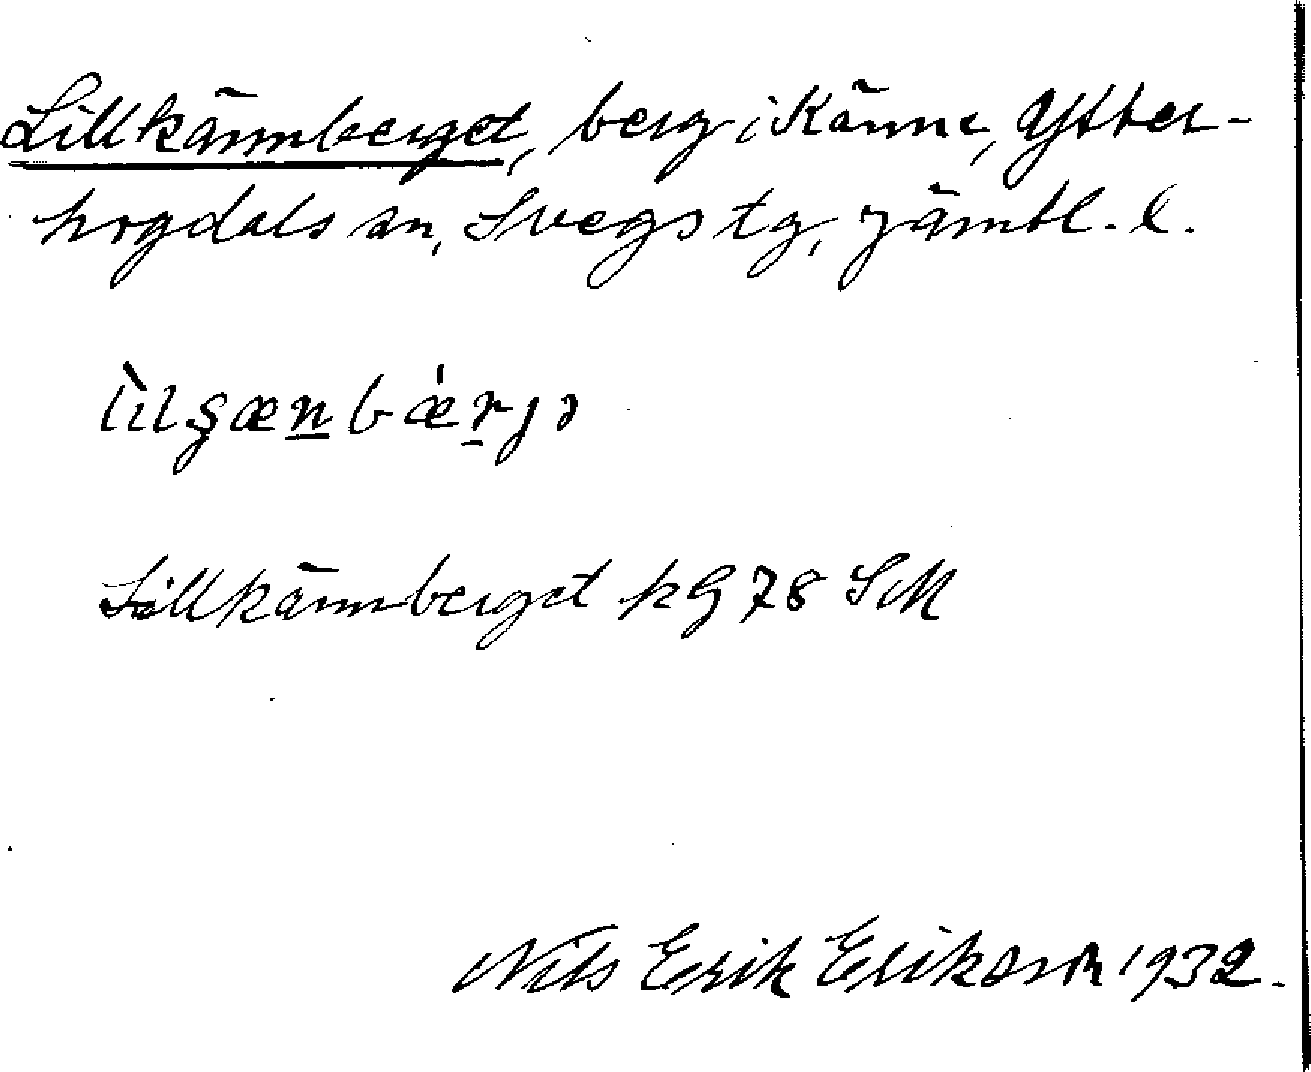 Lillkännberget, berg i Känne, Ytter-
hogdals sn, Svegs tg, Jämtl. l.
lilʂænbærjə
Lillkännberget kG 78 SM
Nils Erik Erikson 1932.